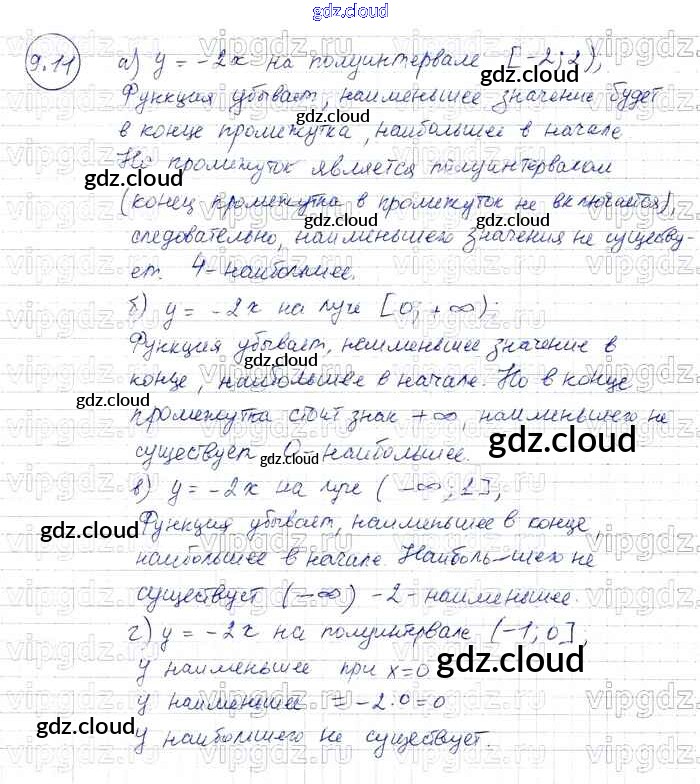 gdz.cloud
9.11 а) y = -2x на полуинтервале [-2; 2),
Функция убывает, наименьшее значение будет
в конце промежутка, наибольшее в начале
Но промежуток является полуинтервалом
(конец промежутка в промежуток не включается),
следовательно, наименьшего значения не существу-
ет. 4-наибольшее.
б) y = -2x на луче [0; +∞):
Функция убывает, наименьшее значение в
конце, наибольшее в начале. Но в конце
промежутка стоит знак +∞, наименьшего не
существует 0-наибольшее.
в) y = -2x на луче (-∞; 1],
Функция убывает, наименьшее в конце,
наибольшее в начале. Наиболь-шего не
существует (-∞) -2-наименьшее.
г) y = -2x на полуинтервале (-1; 0],
y наименьшее при x=0
y наименьшее = -2·0=0
y наибольшего не существует.